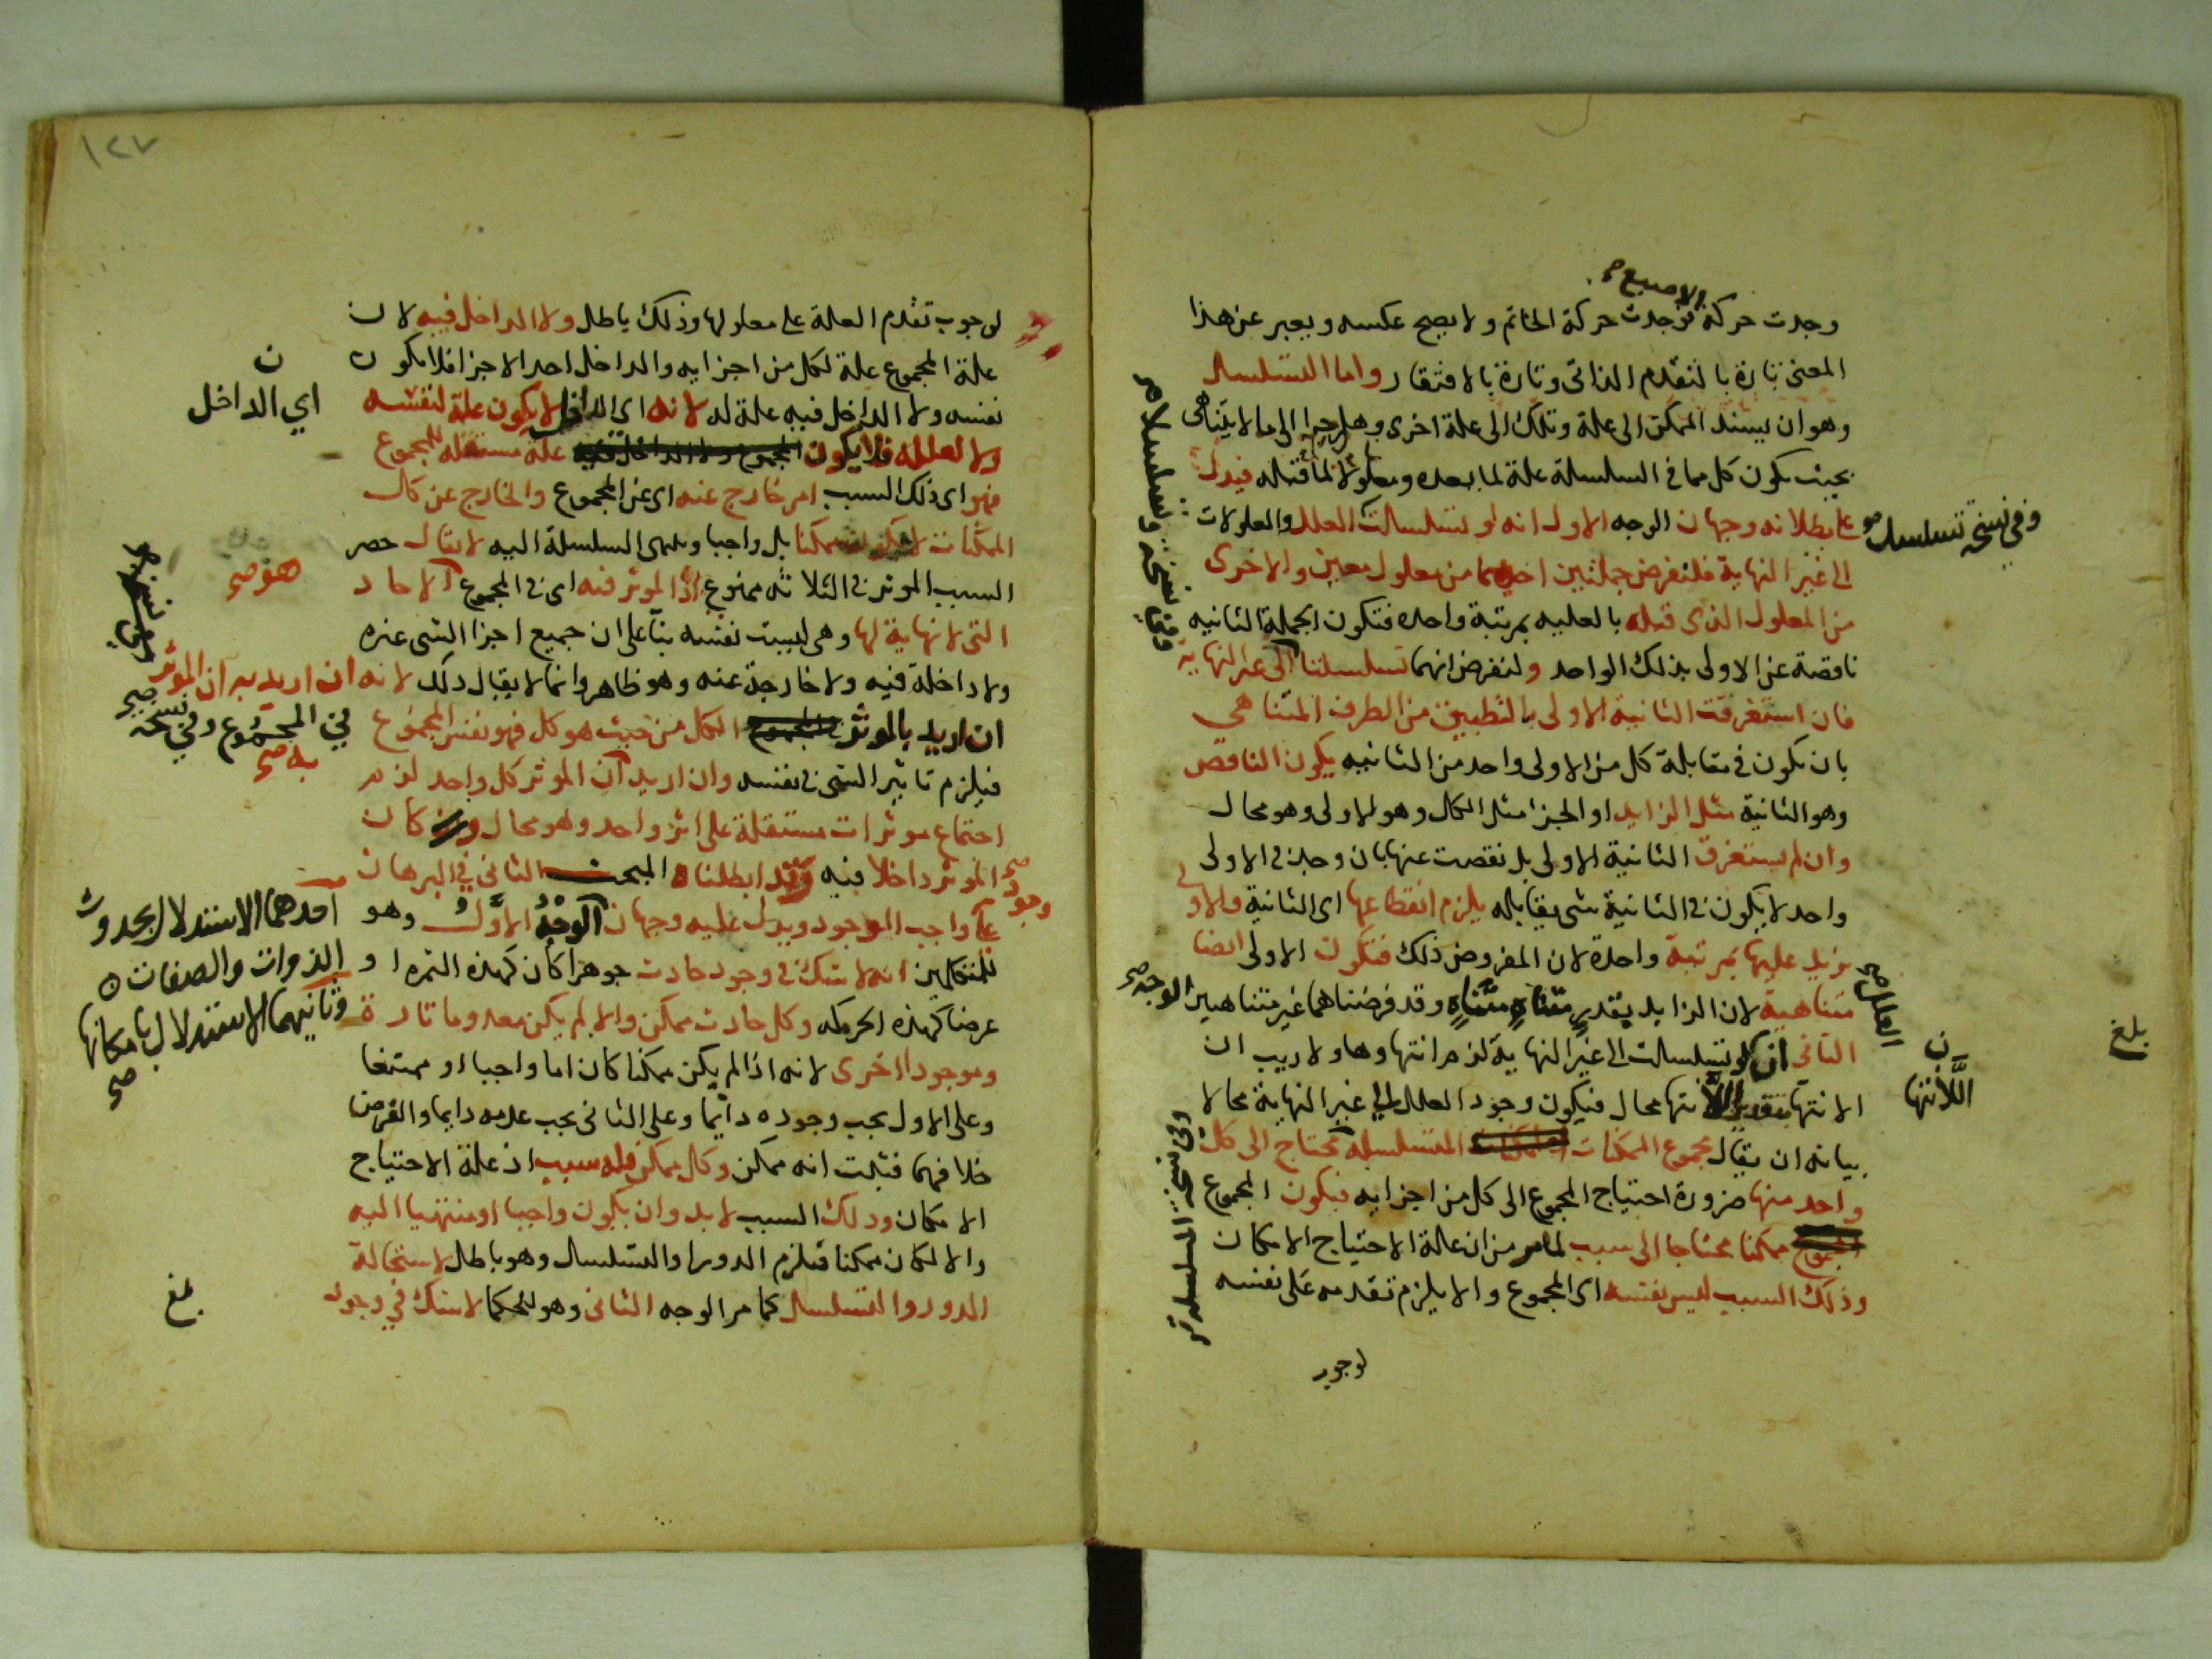 الاصبع صح
وجدت حركة فوجدت حركة الخاتم ولا يصح عكسه ويعبر عن هذا
المعنى تارة بالتقدم الذاتى وتارة بالافتقار واما التسلسل
وهو ان يستند الممكن الى علة وتلك الى علة اخرى وهلم جرا الى ما لا يتناهى
بحيث يكون كل مما فى السلسلة علة لما بعده ومعلولا لما قبله فيدل
على بطلانه وجهان الوجه الاول انه لو تسلسلت العلل والمعلولات
وفى نسخة تسلسل
الى غير النهاية فلنفرض جملتين احديهما من معلول معين والاخرى
من المعلول الذى قبله بالعليه بمرتبة واحده فتكون الجملة الثانيه
ناقصة عن الاولى بذلك الواحد ولنفرض انهما تسلسلتا الى غير النهاية
فان استغرقت الثانية الاولى بالتطبيق من الطرف المتناهي
بان تكون فى مقابلة كل من الاولى واحد من الثانيه يكون الناقص
وهو الثانية مثل الزايد او الجزء مثل الكل وهو الاولى وهو محال
وان لم يستغرق الثانية الاولى بل نقصت عنها بان وجد فى الاولى
واحد لا يكون فى الثانية شى يقابله يلزم انقطاعها اى الثانية والاولى
تزيد عليها بمرتبة واحدة لان المفروض ذلك فتكون الاولى ايضا
متناهية لان الزايد بقدر متناه متناه وقد فرضناهما غير متناهيين
الوجه صح
العلل صح
الثانى ان لو تسلسلت الى غير النهاية لزم انتهاوها ولا ريب ان
ن
اللاانتها
الانتها بتقدير اللاانتها محال فيكون وجود العلل الى غير النهاية محالا
بيانه ان يقال مجموع الممكنات المتسلسلة محتاج الى كل
واحد منها ضرورة احتياج المجموع الى كل من اجزايه فيكون المجموع
ممكنا محتاجا الى سبب لما مر من ان علة الاحتياج الامكان
وذلك السبب ليس نفسه اى المجموع والا يلزم تقدمه على نفسه
وفى نسخة المتسلسله
بلغ
لوجوب
١٢٧
لوجوب تقدم العلة على معلولها وذلك باطل ولا الداخل فيه لان
علة المجموع علة لكل من اجزايه والداخل احد الاجزا فلا يكون
نفسه ولا الداخل فيه علة له لانه اى الداخل لا يكون علة لنفسه
ن
اي الداخل
ولا لعلله فلا يكون المجموع ولا الداخل فيه علة مستقله للمجموع
فهو اى ذلك السبب امر خارج عنه اى عن المجموع والخارج عن كل
الممكنات لا يكون ممكنا بل واجبا وتنتهى السلسلة اليه لا يقال حصر
السبب الموثر فى الثلاثه ممنوع اذ الموثر فيه اى فى المجموع الاحاد
هو صح
التى لا نهاية لها وهى ليست نفسه بنا على ان جميع اجزا الشى غيره
ولا داخلة فيه ولا خارجة عنه وهو ظاهر وانما لا يقال ذلك لانه ان اريد به ان الموثر
ان اريد بالموثر الكل من حيث هو كل فهو نفس المجموع
في المجموع وفي نسخة
به صح
فيلزم تاثير الشى فى نفسه وان اريد ان الموثر كل واحد لزم
اجتماع موثرات مستقلة على اثر واحد وهو محال كان
الموثر داخلا فيه وقد ابطلناه المبحث الثانى فى البرهان
وجود صح
على واجب الوجود ويدل عليه وجهان الوجه الاول وهو
احدهما الاستدلال بحدوث
الذوات والصفات
وثانيهما الاستدلال بامكانها
صح
للمتكلمين انه لا شك فى وجود حادث جوهرا كان كهذه الثمرة او
عرضا كهذه الحركه وكل حادث ممكن والا لم يكن معدوما تارة
وموجودا اخرى لانه اذا لم يكن ممكنا كان اما واجبا او ممتنعا
وعلى الاول يجب وجوده دايما وعلى الثانى يجب عدمه دايما والفرض
خلافهما فثبت انه ممكن وكل ممكن فله سبب اذ علة الاحتياج
الامكان وذلك السبب لا بد وان يكون واجبا او منتهيا اليه
والا لكان ممكنا فيلزم الدور او التسلسل وهو باطل لاستحالة
الدور والتسلسل كما مر الوجه الثانى وهو للحكما لا شك في وجود
بلغ